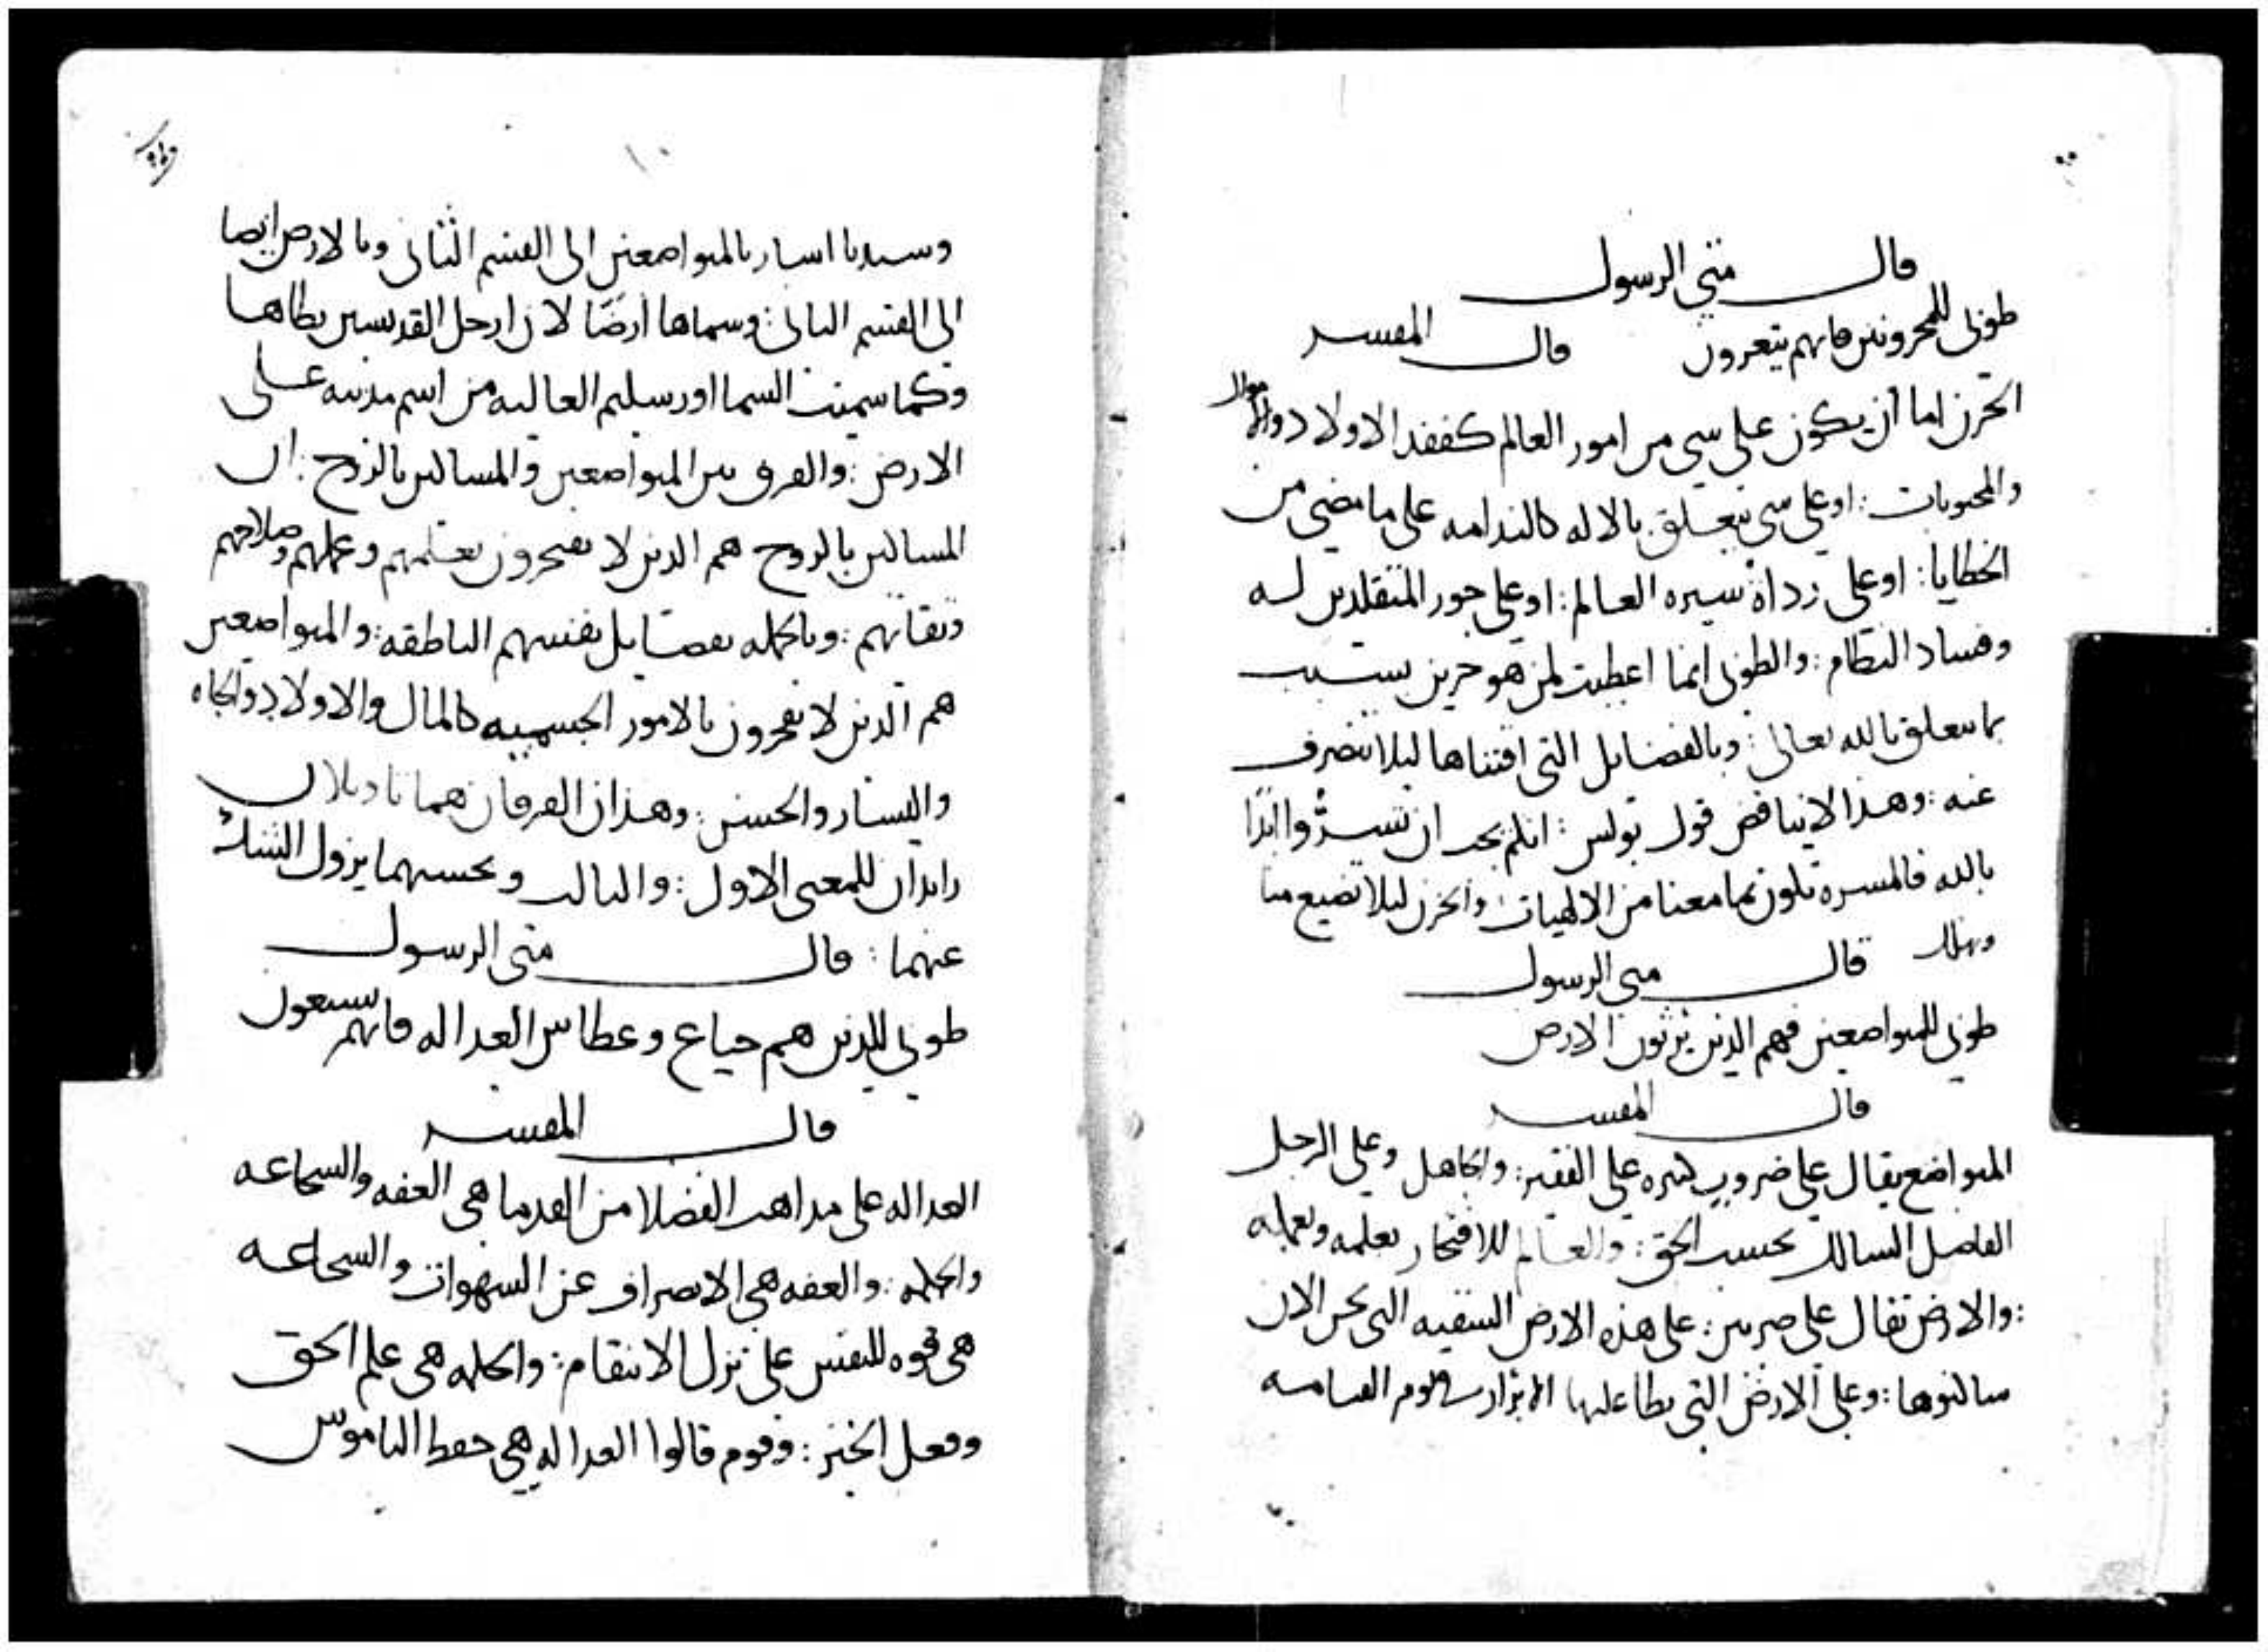 قال متى الرسول
طوبى للمحزونين فانهم يتعزون قال المفسر
الحزن اما ان يكون على شي من امور العالم كفقد الاولاد والاموال
والمحبوبات : او على شي يتعلق بالاله كالندامه على ما مضى من
الخطايا : او على رداة سيره العالم : او على جور المتقلدين له
وفساد النظام : والطوبى انما اعطيت لمن هو حزين بسبب
بما يتعلق بالله تعالى : وبالفضايل التي اقتناها ليلا تنصرف
عنه : وهذا لا يناقض قول بولس : انكم يجب ان تسروا ابدا
بالله فالمسره تكون بما معنا من الالهيات والحزن ليلا تضيع منا
قال متى الرسول
طوبى للمتواضعين فهم الذين يرثون الارض
قال المفسر
المتواضع يقال على ضروب كثيره على الفقير : والجاهل وعلى الرجل
الفاضل السالك بحسب الحق : والعالم للافتخار بعلمه وبعمله
: والارض تقال على ضربين : على هذه الارض الشقيه التي نحن الان
ساكنوها : وعلى الارض التي يطا عليها الابرار في يوم القيامه
١٠
وسيدنا اشار بالمتواضعين الى القسم الثاني وبالارض ايضا
الى القسم الثاني : وسماها ارضا لان ارجل القديسين تطاها
وكما سميت السما اورشليم العاليه من اسم مدينه على
الارض : والفرق بين المتواضعين والمساكين بالروح : ان
المساكين بالروح هم الذين لا يفتخرون بعلمهم وعملهم وصلاحهم
وتقاتهم : وبالجمله بفضايل نفسهم الناطقه : والمتواضعين
هم الذين لا يفخرون بالامور الجسميه كالمال والاولاد والجاه
واليسار والحسن : وهذان الفرقان هما تاويلان
زايدان للمعنى الاول : والثالث وبحسبهما يزول الشك
عنهما : قال متى الرسول
طوبى للذين هم جياع وعطاش العداله فانهم سيشبعون
قال المفسر
العداله على مذاهب الفضلا من القدما هي العفه والشجاعه
والحكمه : والعفه هي الانصراف عن الشهوات والشجاعه
هي قوه للنفس على ترك الانتقام : والحكمه هي علم الحق
وفعل الخير : وقوم قالوا العداله هي حفظ الناموس